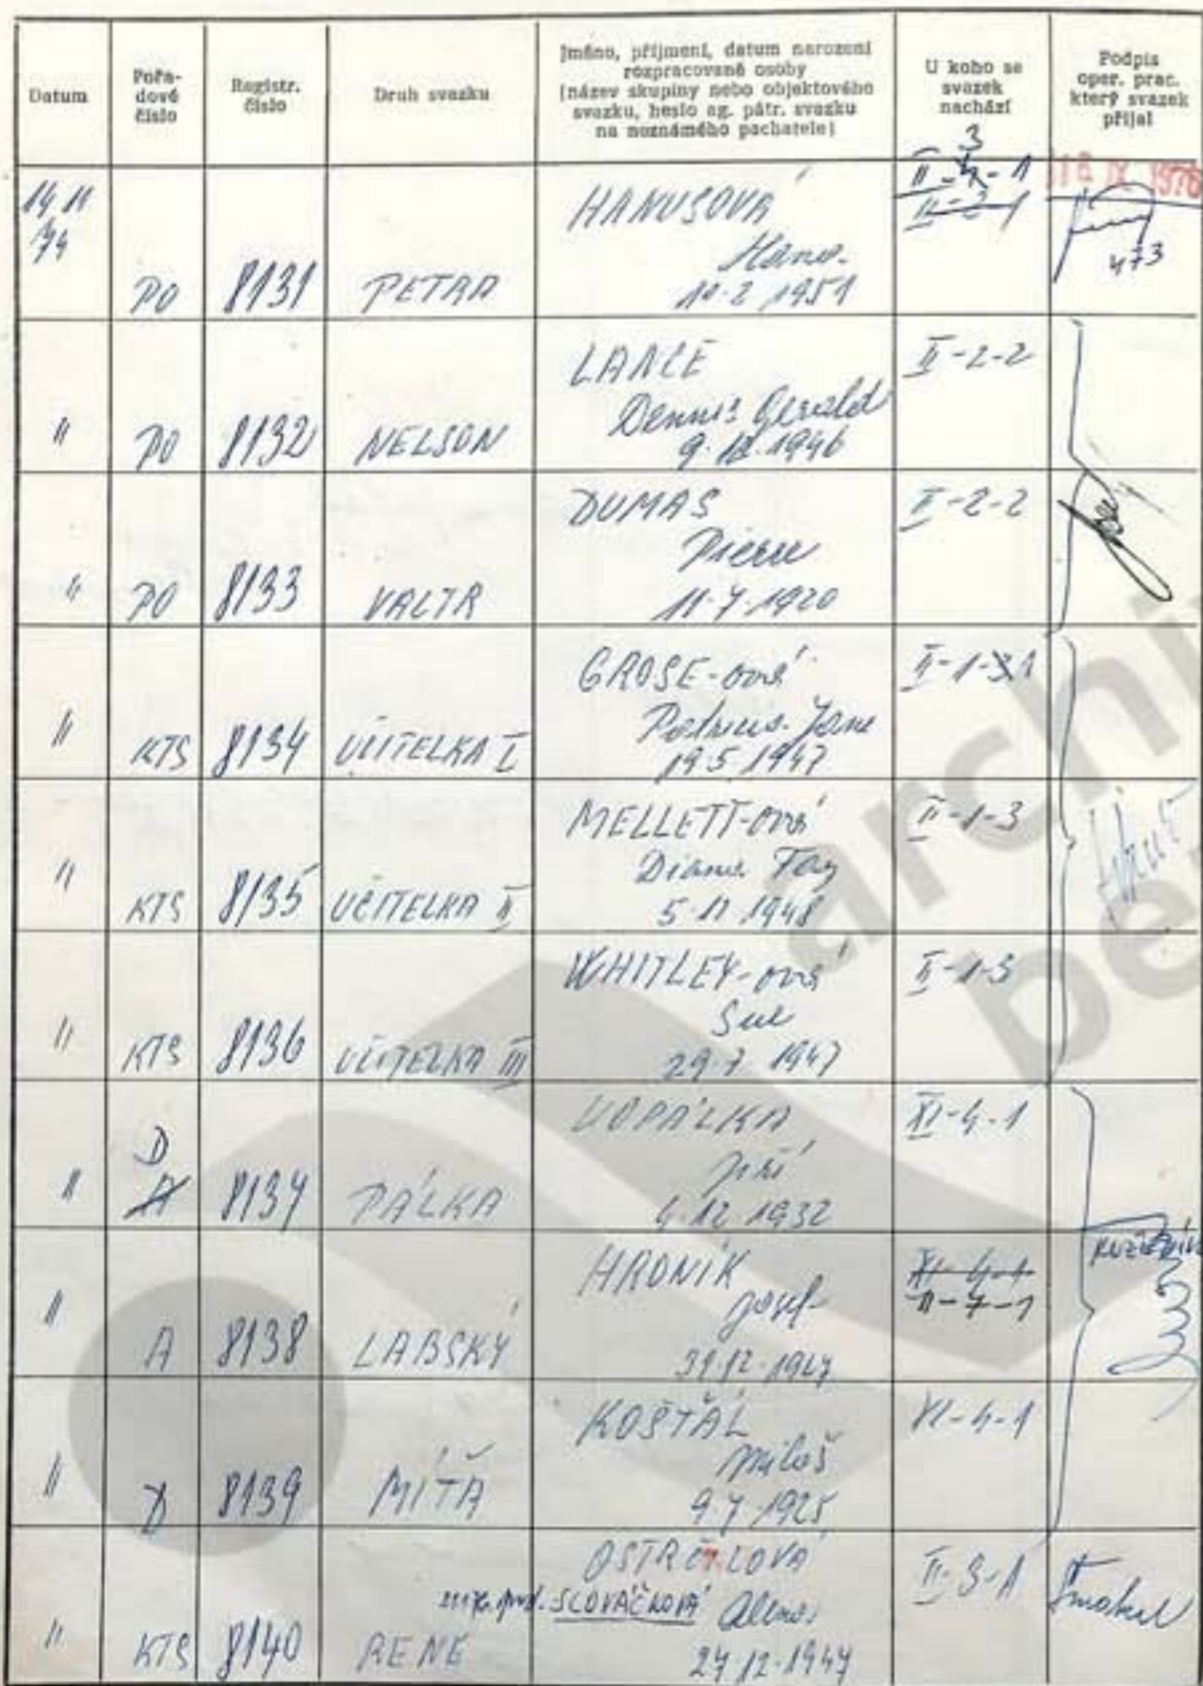 Datum
Pořa-
dové
číslo
Registr.
číslo
Druh svazku
Jméno, příjmení, datum narození
rozpracované osoby
(název skupiny nebo objektového
svazku, heslo ag. pátr. svazku
na neznámého pachatele)
U koho se
svazek
nachází
Podpis
oper. prac.
který svazek
přijal
14 11
74
PO 8131 PETRA
HANUSOVÁ
Hana
10.2 1951
3
II-4-1
II-2-1
IX 1976
473
" PO 8132 NELSON
LANCE
Dennis Gerald
9.12.1946
II-2-2
" PO 8133 VALTR
DUMAS
Pierre
11.7.1920
II-2-2
" KTS 8134 UČITELKA I
GROSE-ová
Jane
19.5 1947
II-1-31
" KTS 8135 UČITELKA II
MELLETT-ová
Diana Fay
5.11 1948
II-1-3
" KTS 8136 UČITELKA III
WHITLEY-ová
Sue
29.7 1947
II-1-3
" D A 8137 PÁLKA
VOPÁLKA
Jiří
4.12 1932
XI-4-1
" A 8138 LABSKÝ
HRONÍK
Josef
31.12.1927
XI-4-1
II-7-1
" D 8139 MÍŤA
KOŠŤÁL
Miloš
9.7 1925
XI-4-1
" KTS 8140 RENÉ
OSTRČILOVÁ
SLOVÁČKOVÁ Alena
27 12.1947
II-3-1
archi
be